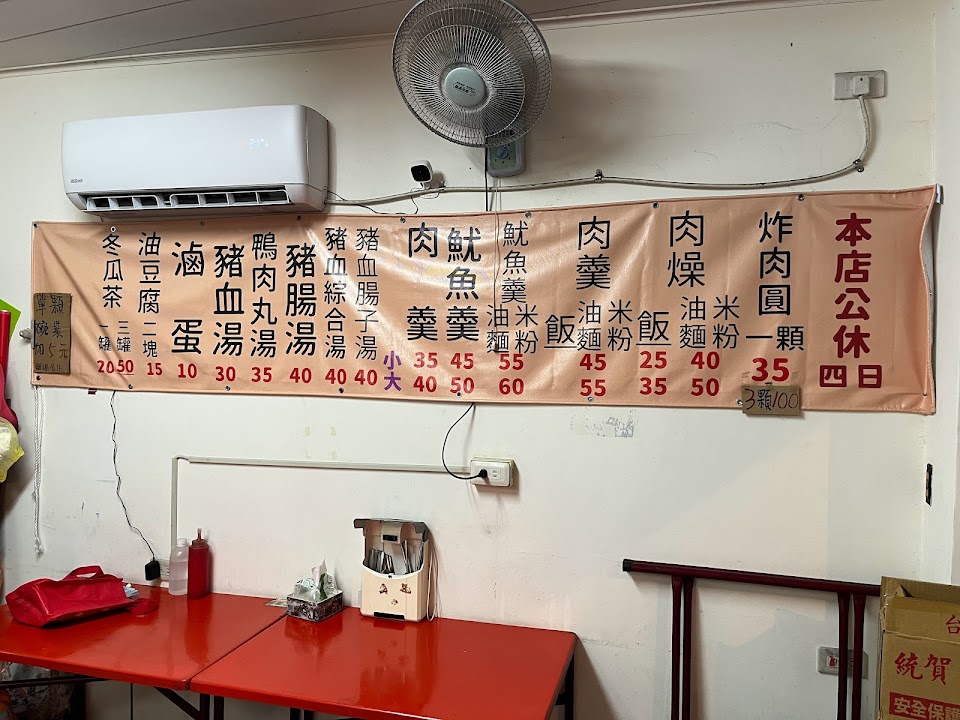 本店公休
四 日
炸肉圓一顆
35
3顆100
肉燥
飯 油麵 米粉
25 40
35 50
肉羹
飯 油麵 米粉
45
55
魷魚羹
油麵 米粉
55
60
魷魚羹
45
50
肉羹
35
40
小
大
豬血腸子湯
40
豬血綜合湯
40
豬腸湯
40
鴨肉丸湯
35
豬血湯
30
滷蛋
10
油豆腐二塊
15
冬瓜茶
一罐 三罐
20 50
統賀
安全保
台